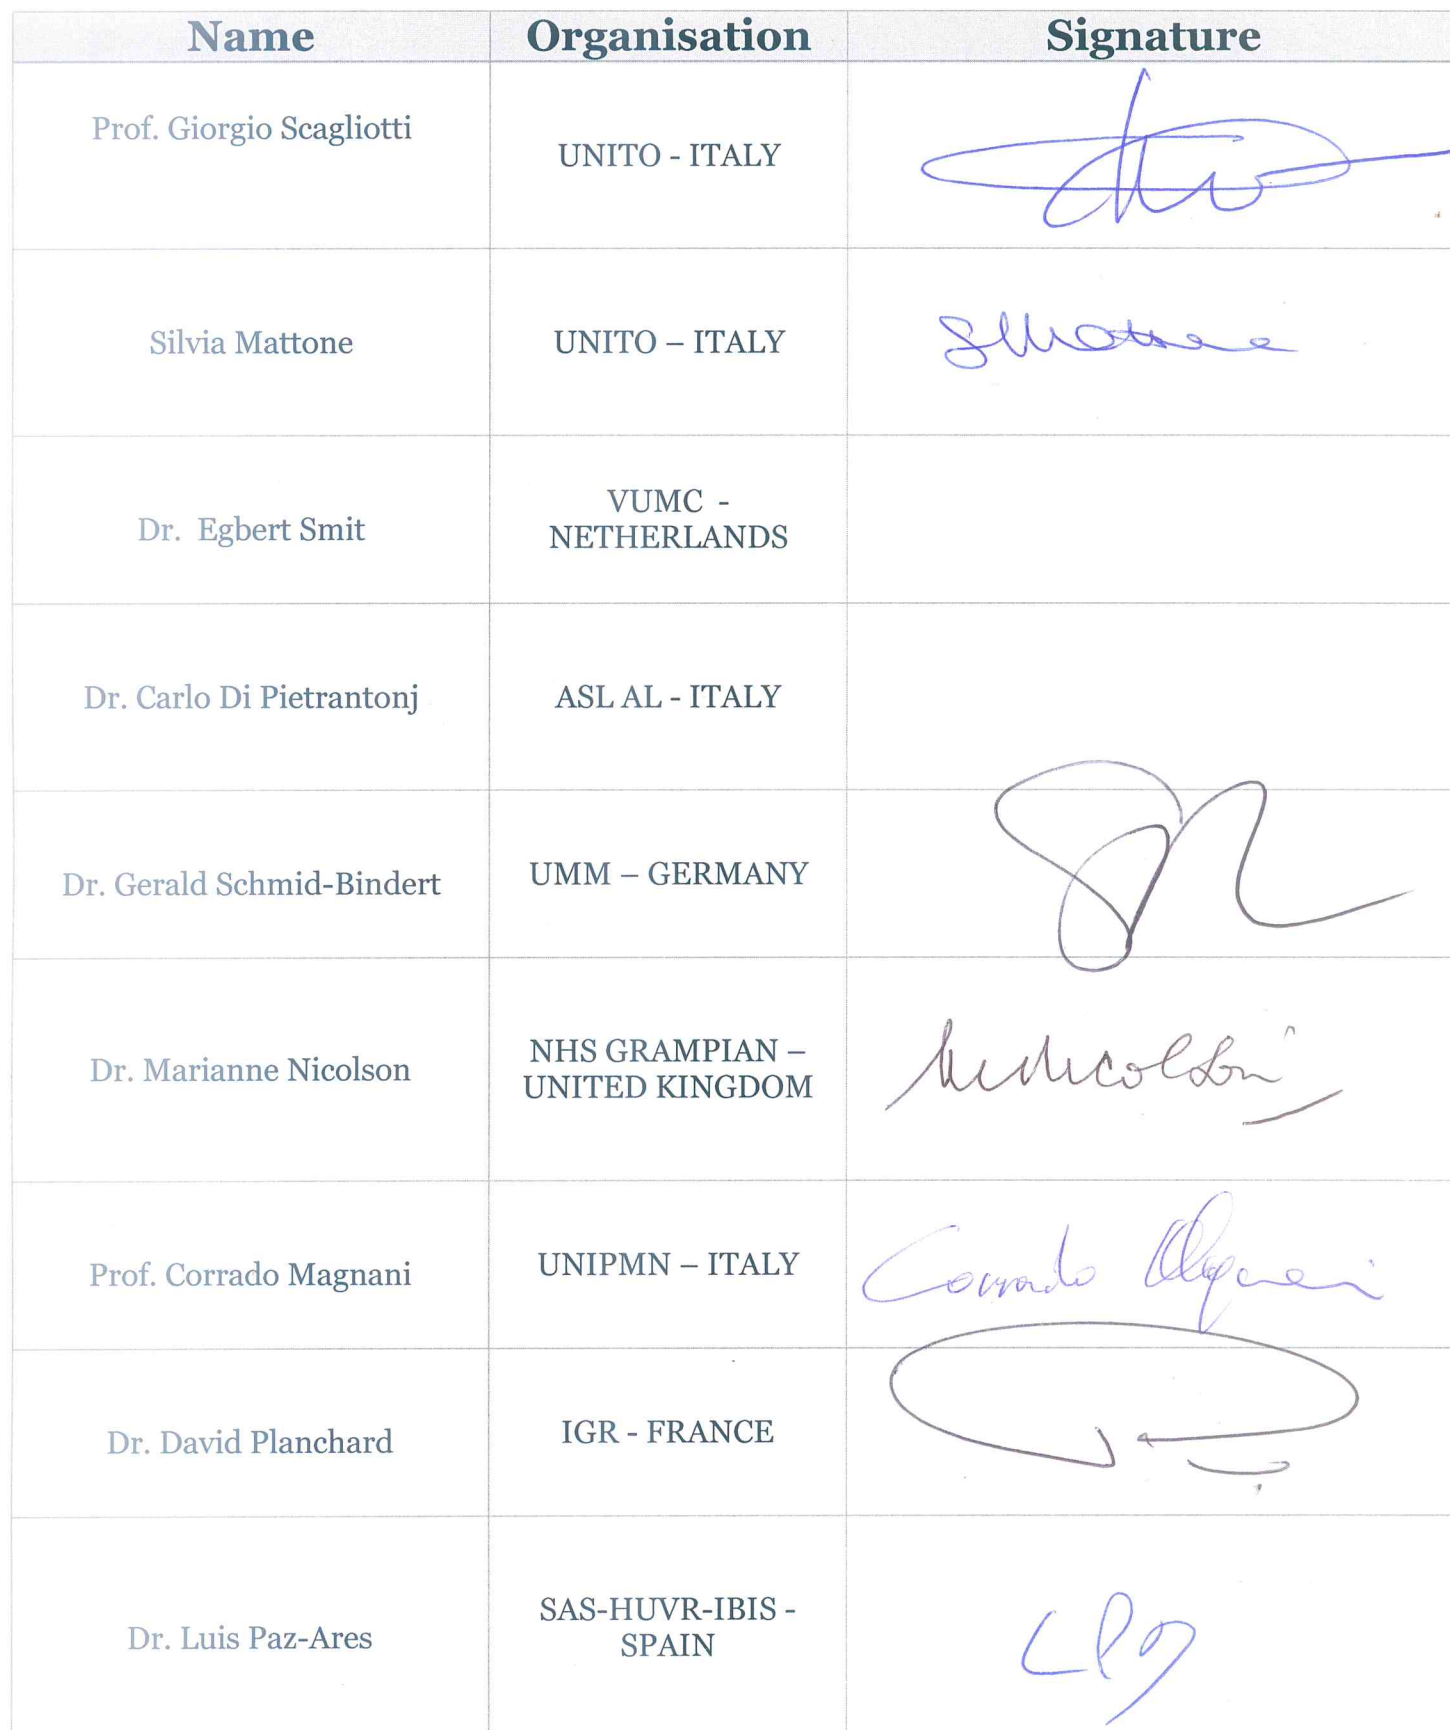 Name Organisation Signature
Prof. Giorgio Scagliotti
UNITO - ITALY
Silvia Mattone UNITO – ITALY SMattone
VUMC -
Dr. Egbert Smit
NETHERLANDS
Dr. Carlo Di Pietrantonj ASL AL - ITALY
Dr. Gerald Schmid-Bindert UMM – GERMANY
NHS GRAMPIAN –
Dr. Marianne Nicolson MNicolson
UNITED KINGDOM
Prof. Corrado Magnani UNIPMN – ITALY Corrado Magnani
Dr. David Planchard IGR - FRANCE
SAS-HUVR-IBIS -
Dr. Luis Paz-Ares
SPAIN